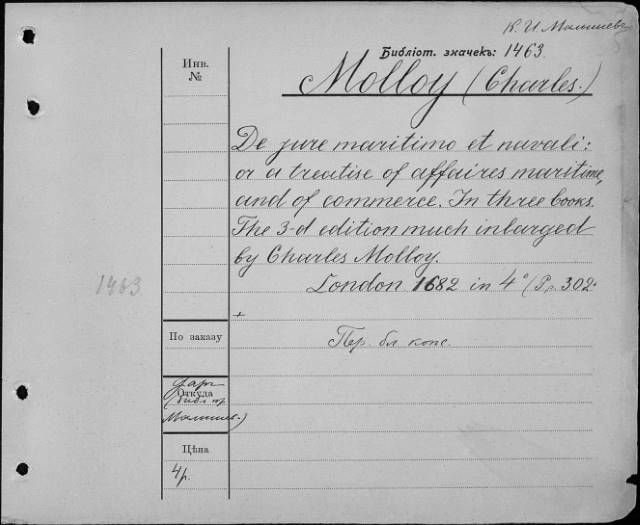 К. И. Малышевъ
Библіот. значекъ: 1463.
Инв.
№
Molloy (Charles.)
De jure maritimo et navali:
or a treatise of affaires maritime,
and of commerce. In three books.
The 3-d edition much inlarged
by Charles Molloy.
1463
London 1682 in 4° (Pp. 302.
+
По заказу
Пер. бл. коже.
Откуда
Цѣна
4 р.